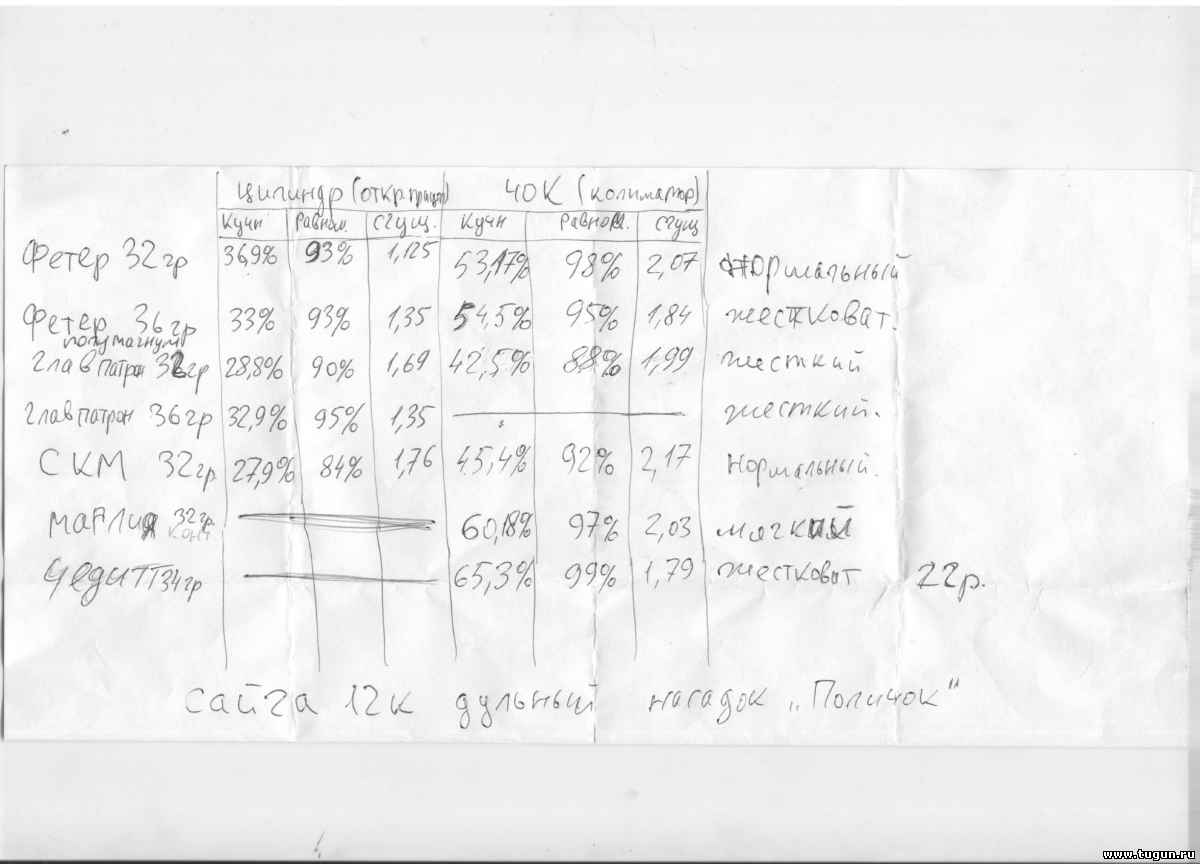 цилиндр (откр.прицел) ЧОК (колиматор)
Кучн Равном. Сгущ. Кучн Равном. сгущ
Фетер 32гр 36,9% 93% 1,125 53,17% 98% 2,07 нормальный
Фетер 36гр 33% 93% 1,35 54,5% 95% 1,84 жестковат.
полумагнум
главпатрон 32гр 28,8% 90% 1,69 42,5% 88% 1,99 жесткий
главпатрон 36гр 32,9% 95% 1,35 жесткий.
СКМ 32гр. 27,9% 84% 1,76 45,4% 92% 2,17 Нормальный.
32гр. 60,18% 97% 2,03 мягкий
34гр 65,3% 99% 1,79 жестковат 22гр.
сайга 12к дульный насадок „Поличок“
www.tugun.ru